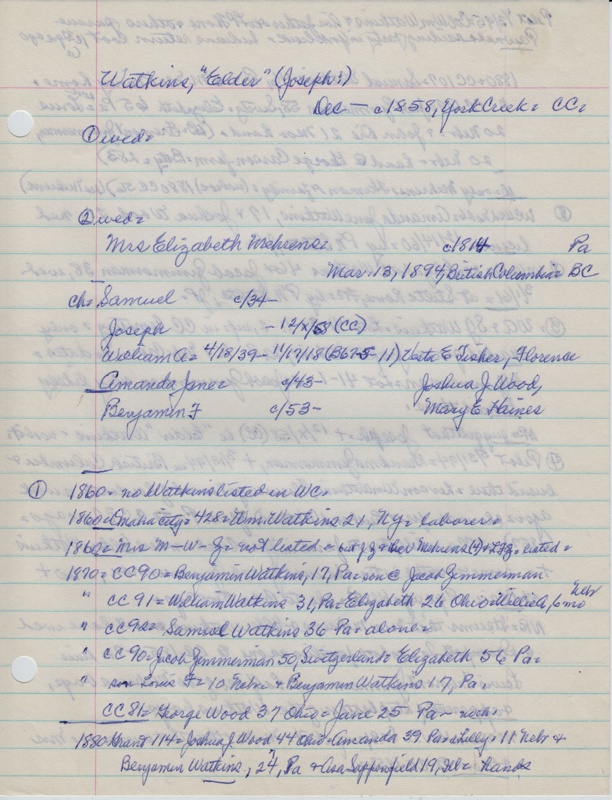 Watkins, "Elder" (Joseph?)
Dec - c1858, York Creek = CC=
① wed=
② wed=
Mrs Elizabeth Mehrens= c1814 Pa
Mar. 13, 1894, British Columbia= BC
ch= Samuel c/34-
Joseph - 12/x/58 (CC)
William A= 4/18/39- 11/17/18 (B67-5-11) Kate E Fisher, Florence
Amanda Jane= c/43- Joshua J. Wood,
Benjamin F c/53- Mary E Haines
① 1860= no Watkins listed in WC=
1860= Omaha City= 428= Wm. Watkins 21, NY= laborer=
1860= Mrs M-W-Z= not listed=
1870= CC90= Benjamin Watkins, 17, Pa= son @ Jacob Zimmerman
" CC 91= William Watkins 31, Pa= Elizabeth 26 Ohio = 6 mo Nebr
" CC92= Samuel Watkins 36 Pa= alone=
" CC 90= Jacob Zimmerman 50, Switzerland= Elizabeth 56 Pa=
" son Louis F= 10, Nebr & Benjamin Watkins 17, Pa=
" CC81= George Wood 37 Ohio= Jane 25 Pa- noch=
1880 Grant 114= Joshua J. Wood 44 Ohio= Amanda 39 Pa= Lilly= 11 Nebr &
Benjamin Watkins, 24, Pa & Asa Sappenfield 19, = hands